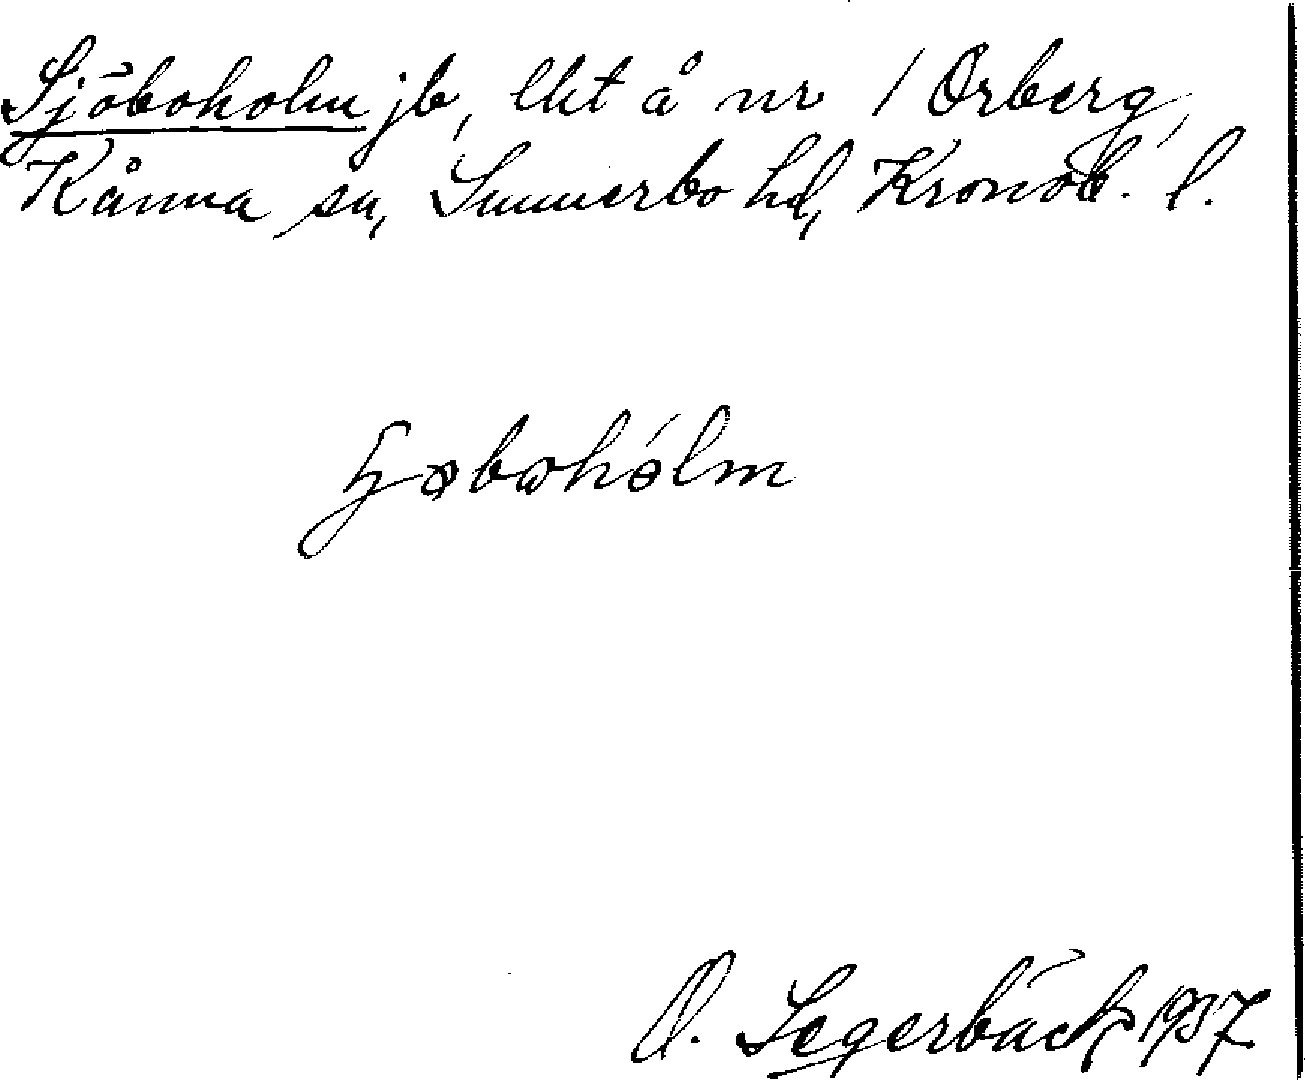 Sjöboholm jb, lht å nr 1 Örberg,
Kånna sn, Sunnerbo hd, Kronob. l.
ɧøbωhólm
O. Segerbäck 1937